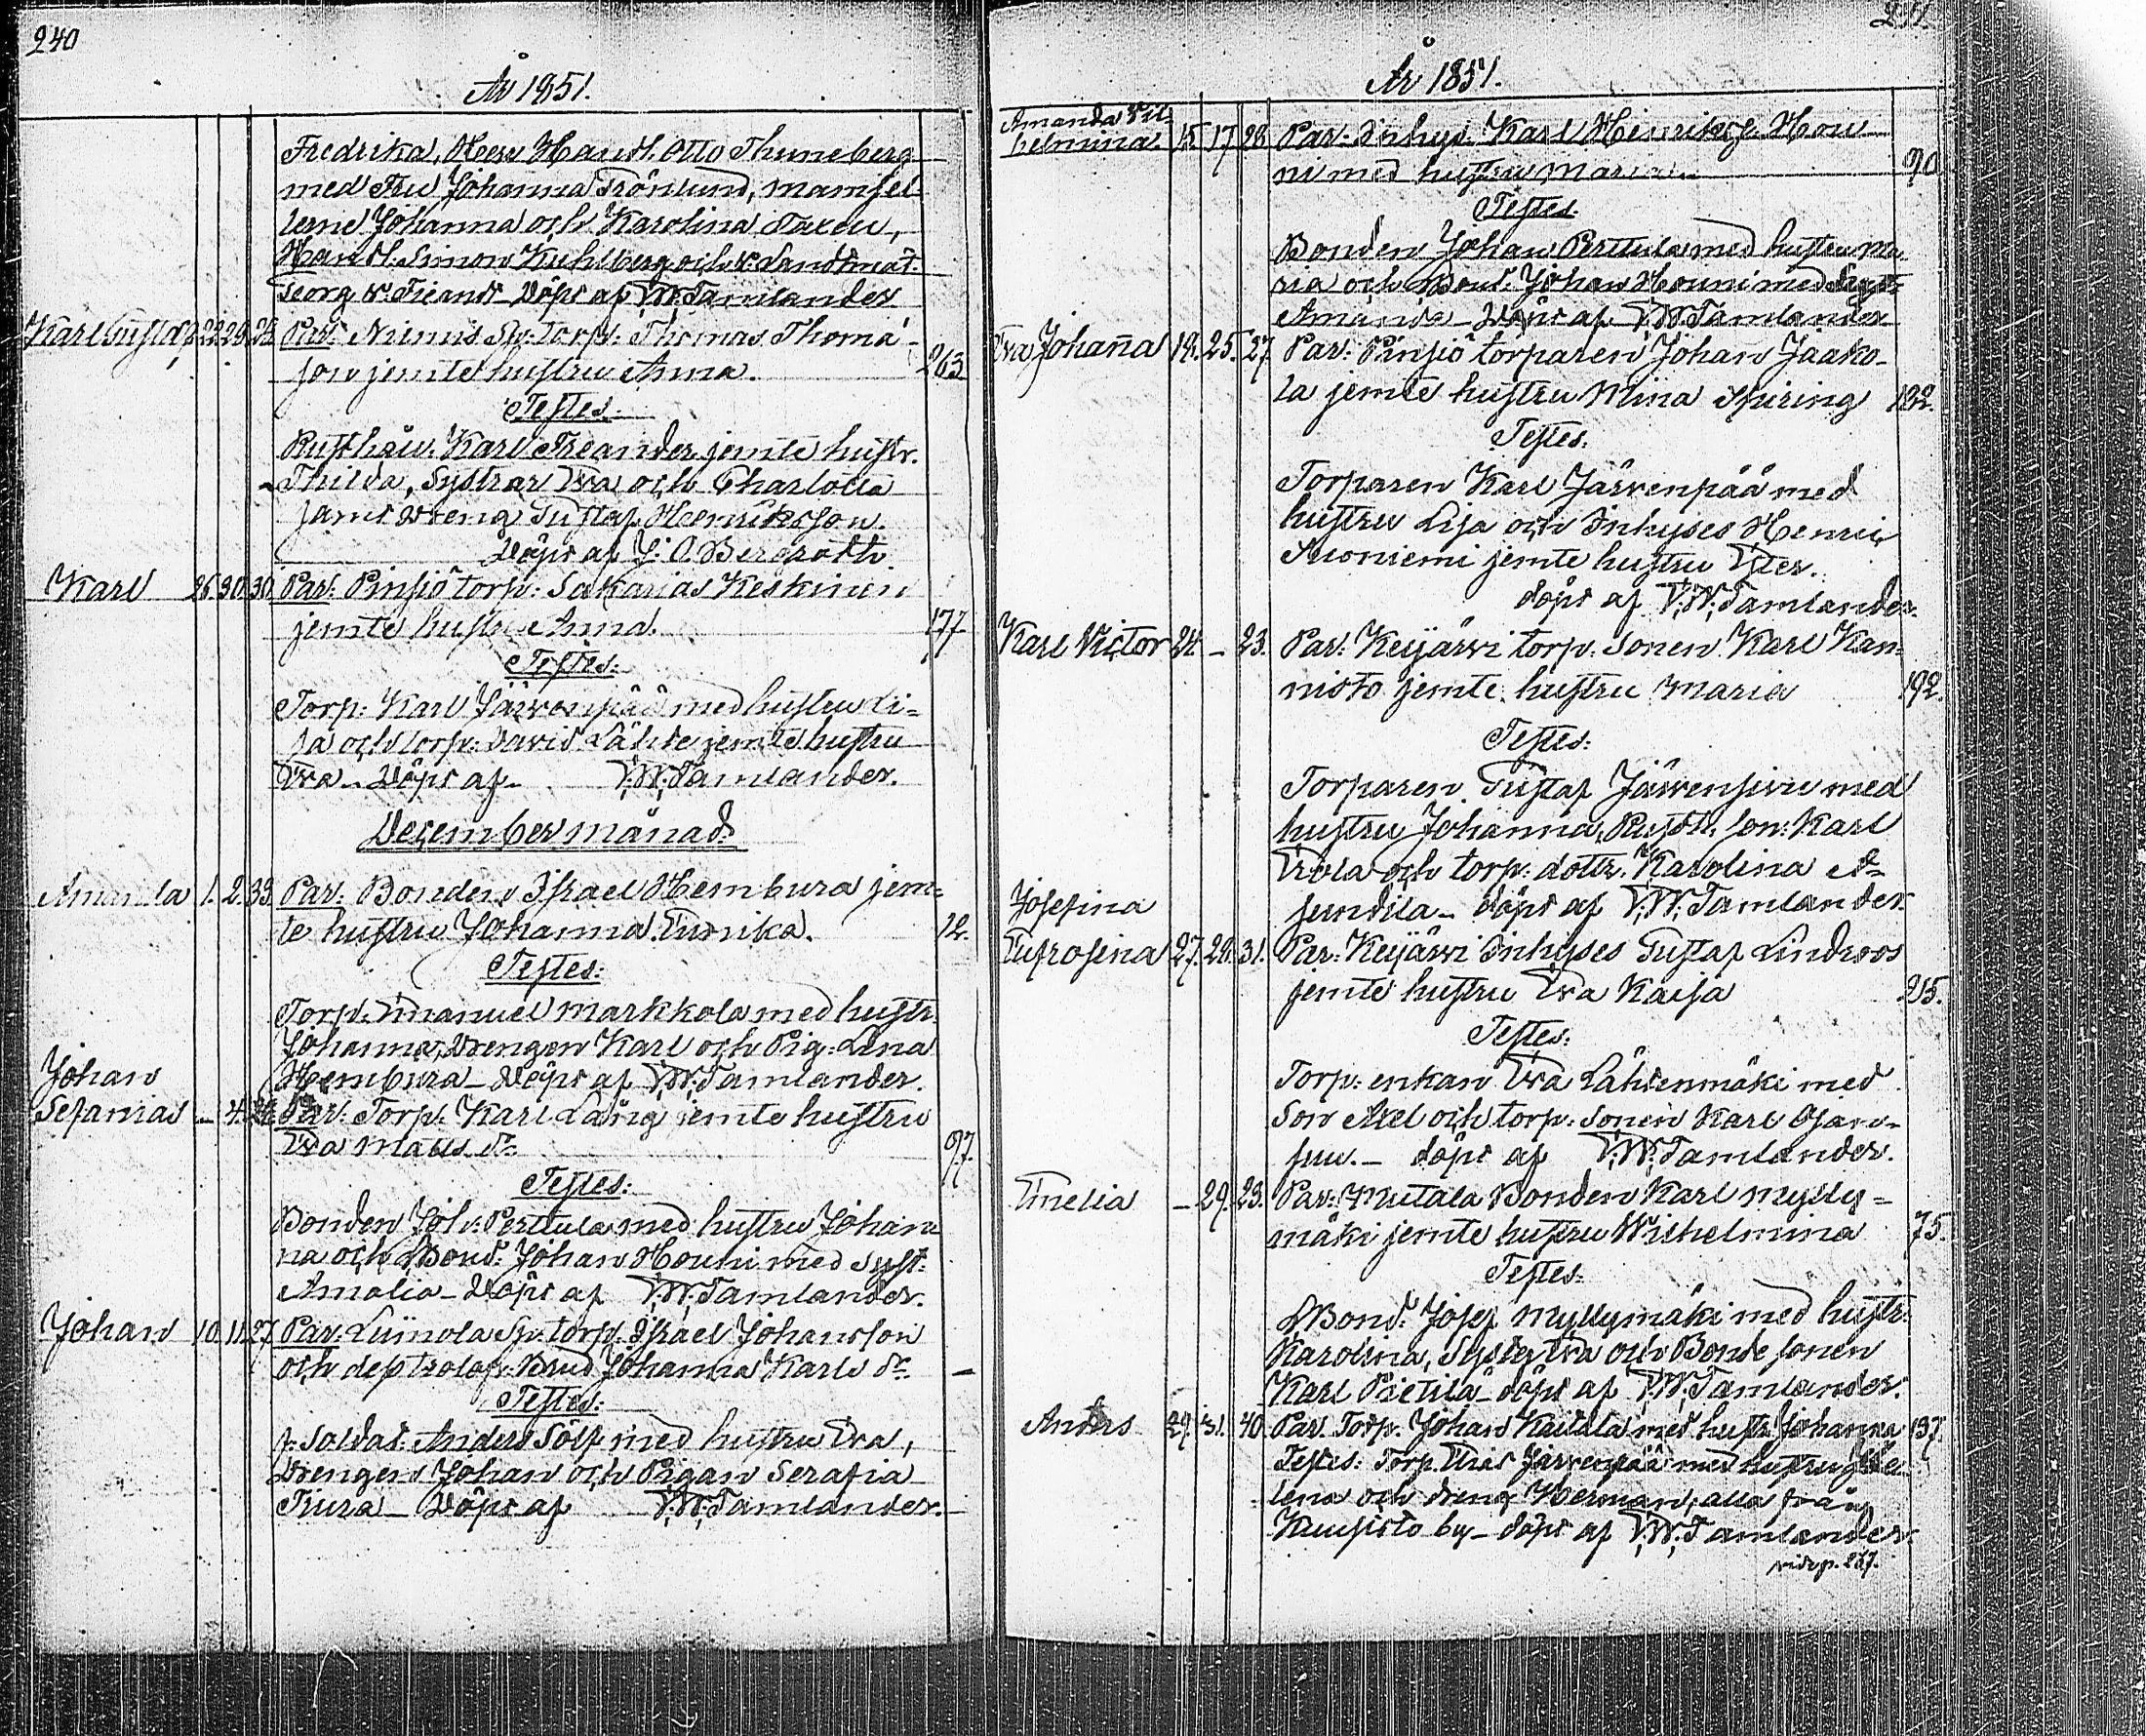 240
År 1851.
Fredrika, Herr Handl. Otto Thuneberg
med Fru Johanna Trönlund, mamsel-
lerne Johanna och Karolina
Handl. Simon Kuhlberg och v. Landtmät.
Georg W. Döpt af F.W. Tamlander
Karl Gustaf 22. 29. 24. Par: Niemis Sp. torp: Thomas Thoma-
son jemte hustru Anna. 263
Testes:
Rusthåll. Karl Freander jemte hustr.
Thilda, Systrar Eva och Charlotta
samt dreng Gustaf Henriksson.
Döpt af J. O. Bergroth
Karl 26. 30. 30. Par: Pinsiö torp: Sakarias Keskinen
jemte hustru Anna. 177
Testes:
Torp: Karl Järvenpää med hustru Li-
sa och torp: David Lähde jemte hustru
Eva - Döpt af F.W. Tamlander.
December månad.
Amanda 1. 2. 33. Par: Bonden Israel Hembura jem-
te hustru Johanna Eurika. 12.
Testes:
Torp: Emanuel Markkola med hustr.
Johanna, Drengen Karl och Pig: Lena
Hembura - Döpt af F.W. Tamlander.
Johan
Sefanias - 4. 24. Par: Torp: Karl Lång jemte hustru
Eva Matts dr. 97.
Testes:
Bonden Joh: Perttula med hustru Johan-
na och Bond: Johan Houni med Syst:
Amalia - Döpt af F.W. Tamlander.
Johan 10. 11. 27. Par: Luinola Sp. torp: Israel Johansson
och dess trolof: Brud Johanna Karls dr. -
Testes:
f. Soldat: Anders Sölf med hustru Eva,
Drengen Johan och Pigan Serafia
Tiura - Döpt af F.W. Tamlander.
År 1851.
Amanda Vil-
helmina. 15. 17. 28. Par: Inhys: Karl Henriks. Hou-
ni med hustru Maria. 90
Testes.
Bonden Johan Perttula med hustru Ma-
ria och Bond: Johan Houni med Syst:
Amanda - Döpt af F.W. Tamlander
Eva Johaña 18. 25. 27. Par: Pinsiö torparen Johan Jaako-
la jemte hustru Mina Spiring 182.
Testes.
Torparen Karl Järvenpää med
hustru Lisa och Inhyses Henric
Kuoniemi jemte hustru Ester.
döpt af F.W. Tamlander.
Karl Victor 24. - 23. Par: Keijärvi torp: Sonen Karl Kan-
nisto jemte hustru Maria 192.
Testes:
Torparen Gustaf Järvensivu med
hustru Johanna, Rusth. son: Karl
Erola och torp: dottr. Karolina A-
jundila - döpt af F.W. Tamlander.
Josefina
Eufrosina 27. 28. 31. Par: Keijärvi Inhyses Gustaf Lindroos
jemte hustru Eva Kaisa 215.
Testes:
Torp: enkan Eva Lähdenmäki med
Son Axel och torp: sonen Karl Ojan-
suu. - döpt af F.W. Tamlander.
Emelia - 29. 23. Par: Mutala Bonden Karl Mylly-
mäki jemte hustru Wilhelmina 75.
Testes:
Bond: Josef Myllymäki med hustr:
Karolina, Syster Eva och Bonde sonen
Karl Pietilä - döpt af F.W. Tamlander.
Anders 29. 31. 40. Par. Torp. Johan Kaitala med hustr. Johanna 137.
Testes: Torp. Elias Järvenpää med hustru He-
lena och dreng Herman, alla från
Kuusisto by - döpt af F.W. Tamlander.
vide p. 237.